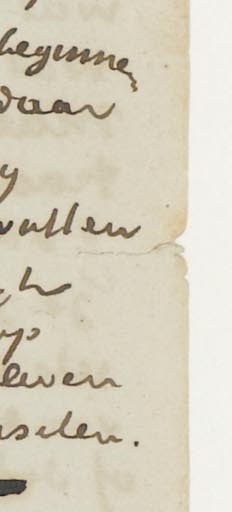 beginnen
daar
y
vatten
ch
op
leven
nselen.